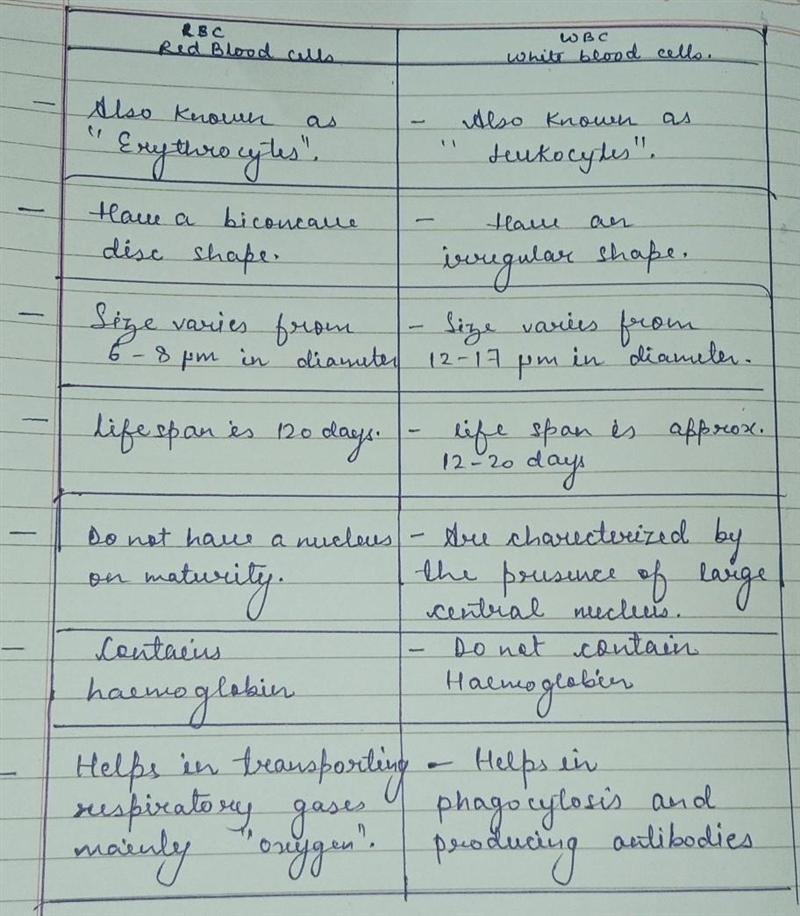 RBC
Red Blood cells
WBC
White blood cells.
- Also known as
"Erythrocytes".
- Also known as
"leukocytes".
- Have a biconcave
disc shape.
- Have an
irregular shape.
- Size varies from
6-8 μm in diameter
- Size varies from
12-17 μm in diameter.
- Life span is 120 days.
- Life span is approx.
12-20 days
- Do not have a nucleus
on maturity.
- Are charecterized by
the presence of large
central nucleus.
- Contains
haemoglobin
- Do not contain
Haemoglobin
- Helps in transporting
respiratory gases
mainly "oxygen".
- Helps in
phagocytosis and
producing antibodies